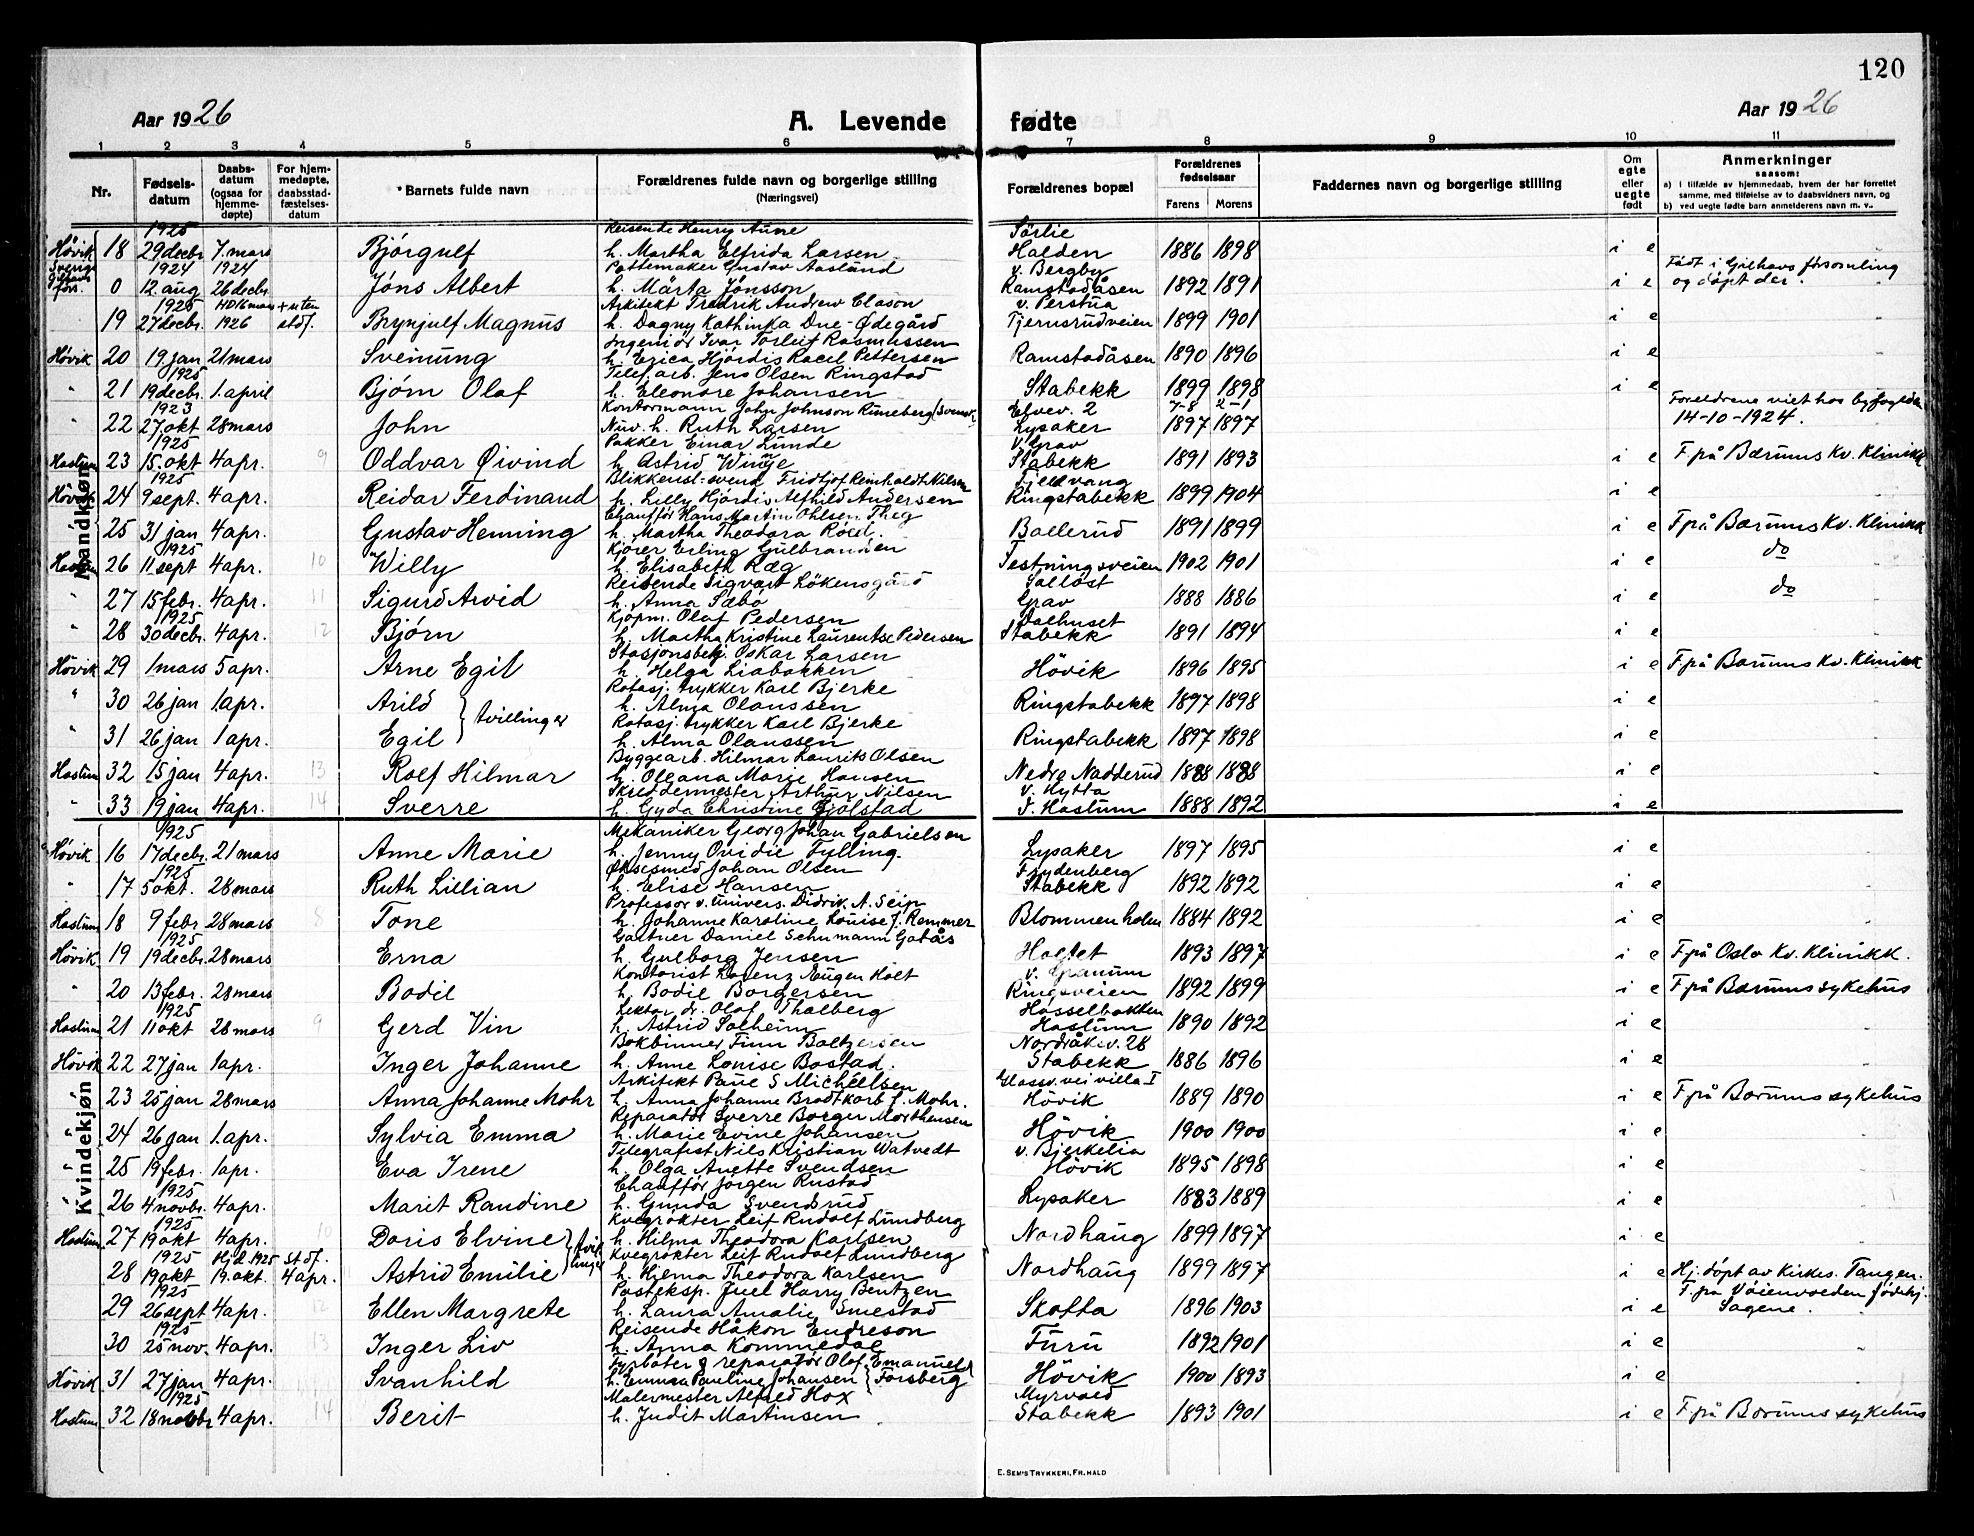 120
Aar 1926
A. Levende fødte
Aar 1926
1 2 3 4 5 6 7 8 9 10 11
Nr.
Fødsels-
datum
Daabs-
datum
(ogsaa for
hjemme-
døpte)
For hjem-
medøpte,
daabsstad-
fæstelses-
datum
*Barnets fulde navn
Forældrenes fulde navn og borgerlige stilling
(Næringsvei)
Forældrenes bopæl
Forældrenes
fødselsaar
Farens Morens
Faddernes navn og borgerlige stilling
Om
egte
eller
uegte
født
Anmerkninger
saasom:
a) i tilfælde av hjemmedaab, hvem der har forrettet
samme, med tilføielse av to daabsvidners navn, og
b) ved uegte fødte barn anmelderens navn m. v.
Mandkjøn
1925 Reisende Henry Aune Sörlie
Hövik 18 29 decbr. 7. mars Björgulf h. Martha Elfrida Larsen Halden 1886 1898 i e
1924 1924 Pottemaker Gustav Aasland v. Bergby Födt i Gilhavs forsamling
0 12. aug 26 decbr. Jöns Albert h. Märta Jönsson Ramstadåsen 1892 1891 i e og döpt der.
1925 HD 16 mars + uten Arkitekt Fredrik Andrew Clason v. Perstua
19 27 decbr. 1926 st df. Brynjulf Magnus h. Dagny Kathinka Due-Ødegård Tjernsrudveien 1899 1901 i e
Ingeniör Ivar Torleif Rasmussen
Hövik 20 19 jan 21 mars Sveinung h. Erica Hjördis Racel Pettersen Ramstadåsen 1890 1896 i e
1925 Telef. arb. Jens Olsen Ringstad
" 21 19 decbr. 1. april Bjørn Olaf h. Eleonore Johansen Stabekk 1899 1898 i e
1923 Kontormann John Johnson Runeberg (svensk) Elvev. 2 7-8 2-1 Foreldrene viet hos byfogden
" 22 27. okt 28 mars John Nuv. h. Ruth Larsen Lysaker 1897 1897 14-10-1924.
1925 Pakker Einar Lunde v. Grav
Haslum 23 15. okt 4 apr. 9 Oddvar Øivind h. Astrid Winge Stabekk 1891 1893 i e F. på Bærums Kv. Klinikk
1925 Blikkensl-svend Fridtjof Reinholdt Nilsen Fjellvang
Hövik 24 9 sept. 4 apr. Reidar Ferdinand h. Lilly Hjördis Alfhild Andersen Ringstabekk 1899 1904 i e
Chaufför Hans Martin Ohlsen Theg
25 31 jan 4 apr. Gustav Henning h. Martha Theodora Röed. Ballerud 1891 1899 i e F. på Bærums Kv. Klinikk
1925 Kjörer Erling Gulbrandsen
Haslum 26 11 sept 4 apr. 10 Willy h. Elisabeth Ræg Festningsveien 1902 1901 i e do
Reisende Sigvart Lökensgård Solløst
" 27 15 febr. 4 apr. 11 Sigurd Arvid h. Anna Sæbö Grav 1888 1886 i e do
1925 Kjöpm. Olaf Pedersen Solhuset
" 28 30 decbr. 4 apr. 12 Bjørn h. Martha Kristine Laurentse Pedersen Stabekk 1891 1894 i e
Stasjonsbetj. Oskar Larsen
Hövik 29 1 mars 5 apr. Arne Egil h. Helga Liabakken Hövik 1896 1895 i e F. på Bærums Kv. Klinikk
Rotasj. trykker Karl Bjerke
" 30 26 jan 1 apr. Arild } tvillinger h. Alma Olaussen Ringstabekk 1897 1898 i e
Rotasj. trykker Karl Bjerke
" 31 26 jan 1 apr. Egil h. Alma Olaussen Ringstabekk 1897 1898 i e
Byggearb. Hilmar Laurits Olsen
Haslum 32 15 jan 4 apr. 13 Rolf Hilmar h. Oleana Marie Hansen Nedre Nadderud 1888 1888 i e
Skreddermester Arthur Nilsen v. Hytta
" 33 19 jan 4 apr. 14 Sverre h. Gyda Christine Gjölstad F. Haslum 1888 1892 i e
Kvindekjøn
1925 Mekaniker Georg Johan Gabrielsen
Hövik 16 17 decbr. 21 mars Anne Marie h. Jenny Ovidie Tylling. Lysaker 1897 1895 i e
1925 Øksesmed Johan Olsen Frydenberg
" 17 5 okt. 28 mars Ruth Lillian h. Elise Hansen Stabekk 1892 1892 i e
Professor v. univers. Didrik A. Seip
Haslum 18 9 febr. 28 mars 8 Tone h. Johanne Karoline Louise f. Remmer Blommenholm 1884 1892 i e
1925 Gartner Daniel Schumann Gatås
Hövik 19 19 decbr. 28 mars Erna h. Gulborg Jensen Holtet 1893 1897 i e F. på Oslo Kv. Klinikk.
Kontorist Lorenz Eugen Holt v. Granum
" 20 13 febr. 28 mars Bodil h. Bodil Borgersen Ringsveien 1892 1899 i e F. på Bærums sykehus
1925 Lektor dr. Olaf Thalberg Hasselbakken
Haslum 21 11 okt 28 mars 9 Gerd Vin h. Astrid Solheim Haslum 1890 1892 i e
Bokbinner Finn Baltzersen Nordråksv. 28
Hövik 22 27 jan 1 apr. Inger Johanne h. Anne Louise Bostad. Stabekk 1886 1896 i e
Arkitekt Paul S Michelsen Glassv.vei villa I
" 23 25 jan 28 mars Anna Johanne Mohr h. Anna Johanne Brodtkorb f. Mohr. Hövik 1889 1890 i e F. på Bærums sykehus
Reparatör Sverre Borger Morthensen
" 24 26 jan 1. apr. Sylvia Emma h. Marie Evine Johansen Hövik 1900 1900 i e
Telegrafist Nils Kristian Watvedt v. Bjerkelia
" 25 19 febr. 1 apr. Eva Irene h. Olga Anette Svendsen Hövik 1895 1898 i e
1925 Chauffør Jörgen Rustad
" 26 4 novbr. 4 apr. Marit Randine h. Gunda Svendsrud Lysaker 1883 1889 i e
1925 Kvegrøkter Leif Rudolf Lundberg
Haslum 27 19 okt 4 apr. 10 Doris Elvine } tvillinger h. Hilma Theodora Karlsen Nordhaug 1899 1897 i e
1925 Hjd. 1925 St df. Kvegrøkter Leif Rudolf Lundberg
28 19 okt 19. okt. 4 apr. Astrid Emilie h. Hilma Theodora Karlsen Nordhaug 1899 1897 i e Hj. döpt av Kirkes. Tangen.
1925 Posteksp. Juel Harry Bentzen F. på Vöienvolden fødehj.
29 26 sept 4 apr. 12 Ellen Margrete h. Laura Amalie Smestad Skotta 1896 1903 i e Sagene.
1925 Reisende Håkon Endreson
30 25 nov. 4 apr. 13 Inger Liv h. Anna Kommedal Furu 1892 1901 i e
Fyrböter & reparatör Olaf Emanuel
Hövik 31 27 jan 4 apr. Svanhild h. Emma Pauline Johansen } Forsberg Hövik 1900 1893 i e
1925 Malermester Alfred Hox Myrvold
Haslum 32 18 novbr 4 apr. 14 Berit h. Judit Martinsen Stabekk 1893 1901 i e F. på Bærums sykehus
E. SEM'S TRYKKERI, FR. HALD